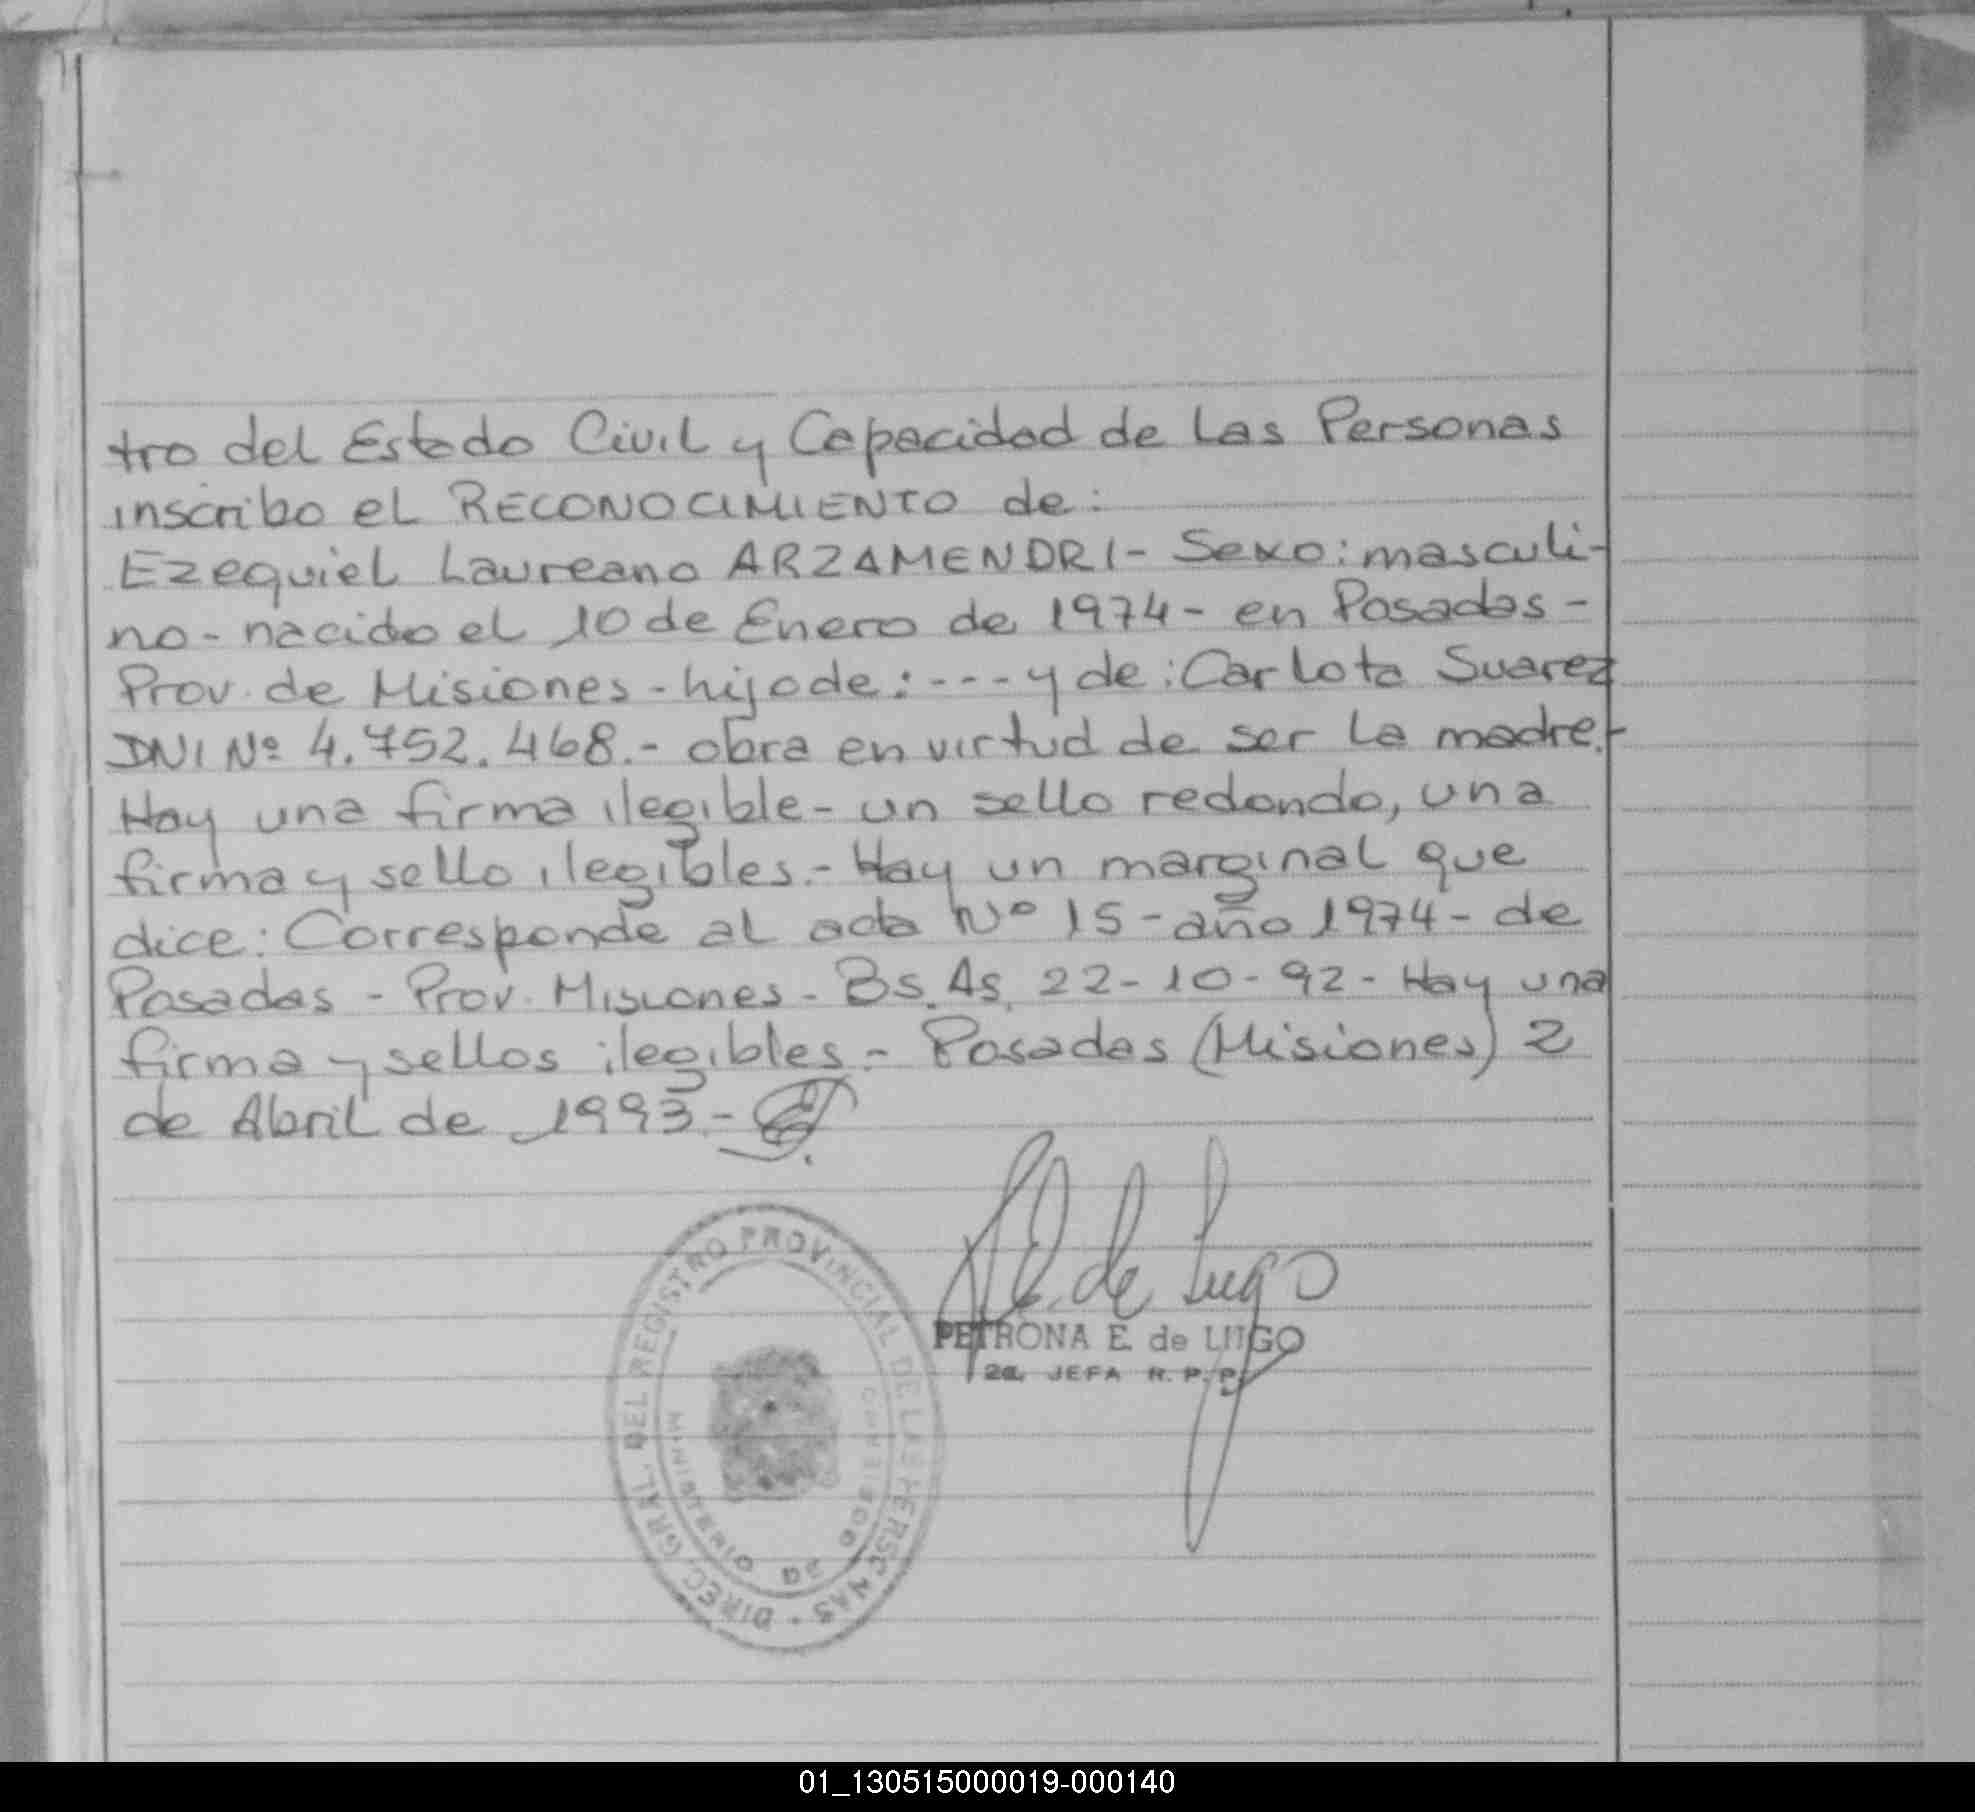 tro del Estado Civil y Capacidad de las Personas
inscribo el RECONOCIMIENTO de:
Ezequiel Laureano ARZAMENDRI - Sexo: masculi-
no - nacido el 10 de Enero de 1974 - en Posadas -
Prov. de Misiones - hijo de: --- y de: Carlota Suarez
DNI Nº 4.752.468.- obra en virtud de ser la madre.-
Hay una firma ilegible - un sello redondo, una
firma y sello ilegibles.- Hay un marginal que
dice: Corresponde al acta Nº 15 - año 1974 - de
Posadas - Prov. Misiones - Bs. As. 22-10-92 - Hay una
firma y sellos ilegibles.- Posadas (Misiones) 2
de Abril de 1993.-
E. de Lugo
PETRONA E. de LUGO
2a. JEFA R. P. P.
DIREC. GRAL. DEL REGISTRO PROVINCIAL DE LAS PERSONAS -
MINISTERIO DE GOBIERNO
01_130515000019-000140